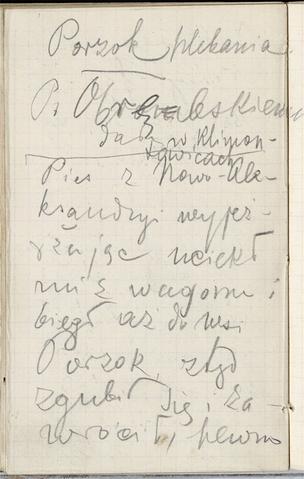 Porzok plekania
P. Obrembskiemu
dać w Klimon-
towicach
Pies z Nowo-Ale-
ksandryi wyjeż-
dżając uciekł
mi z wagonu i
biegł aż do wsi
Porzok, stąd
zgubił się i za-
wrócił, pewno